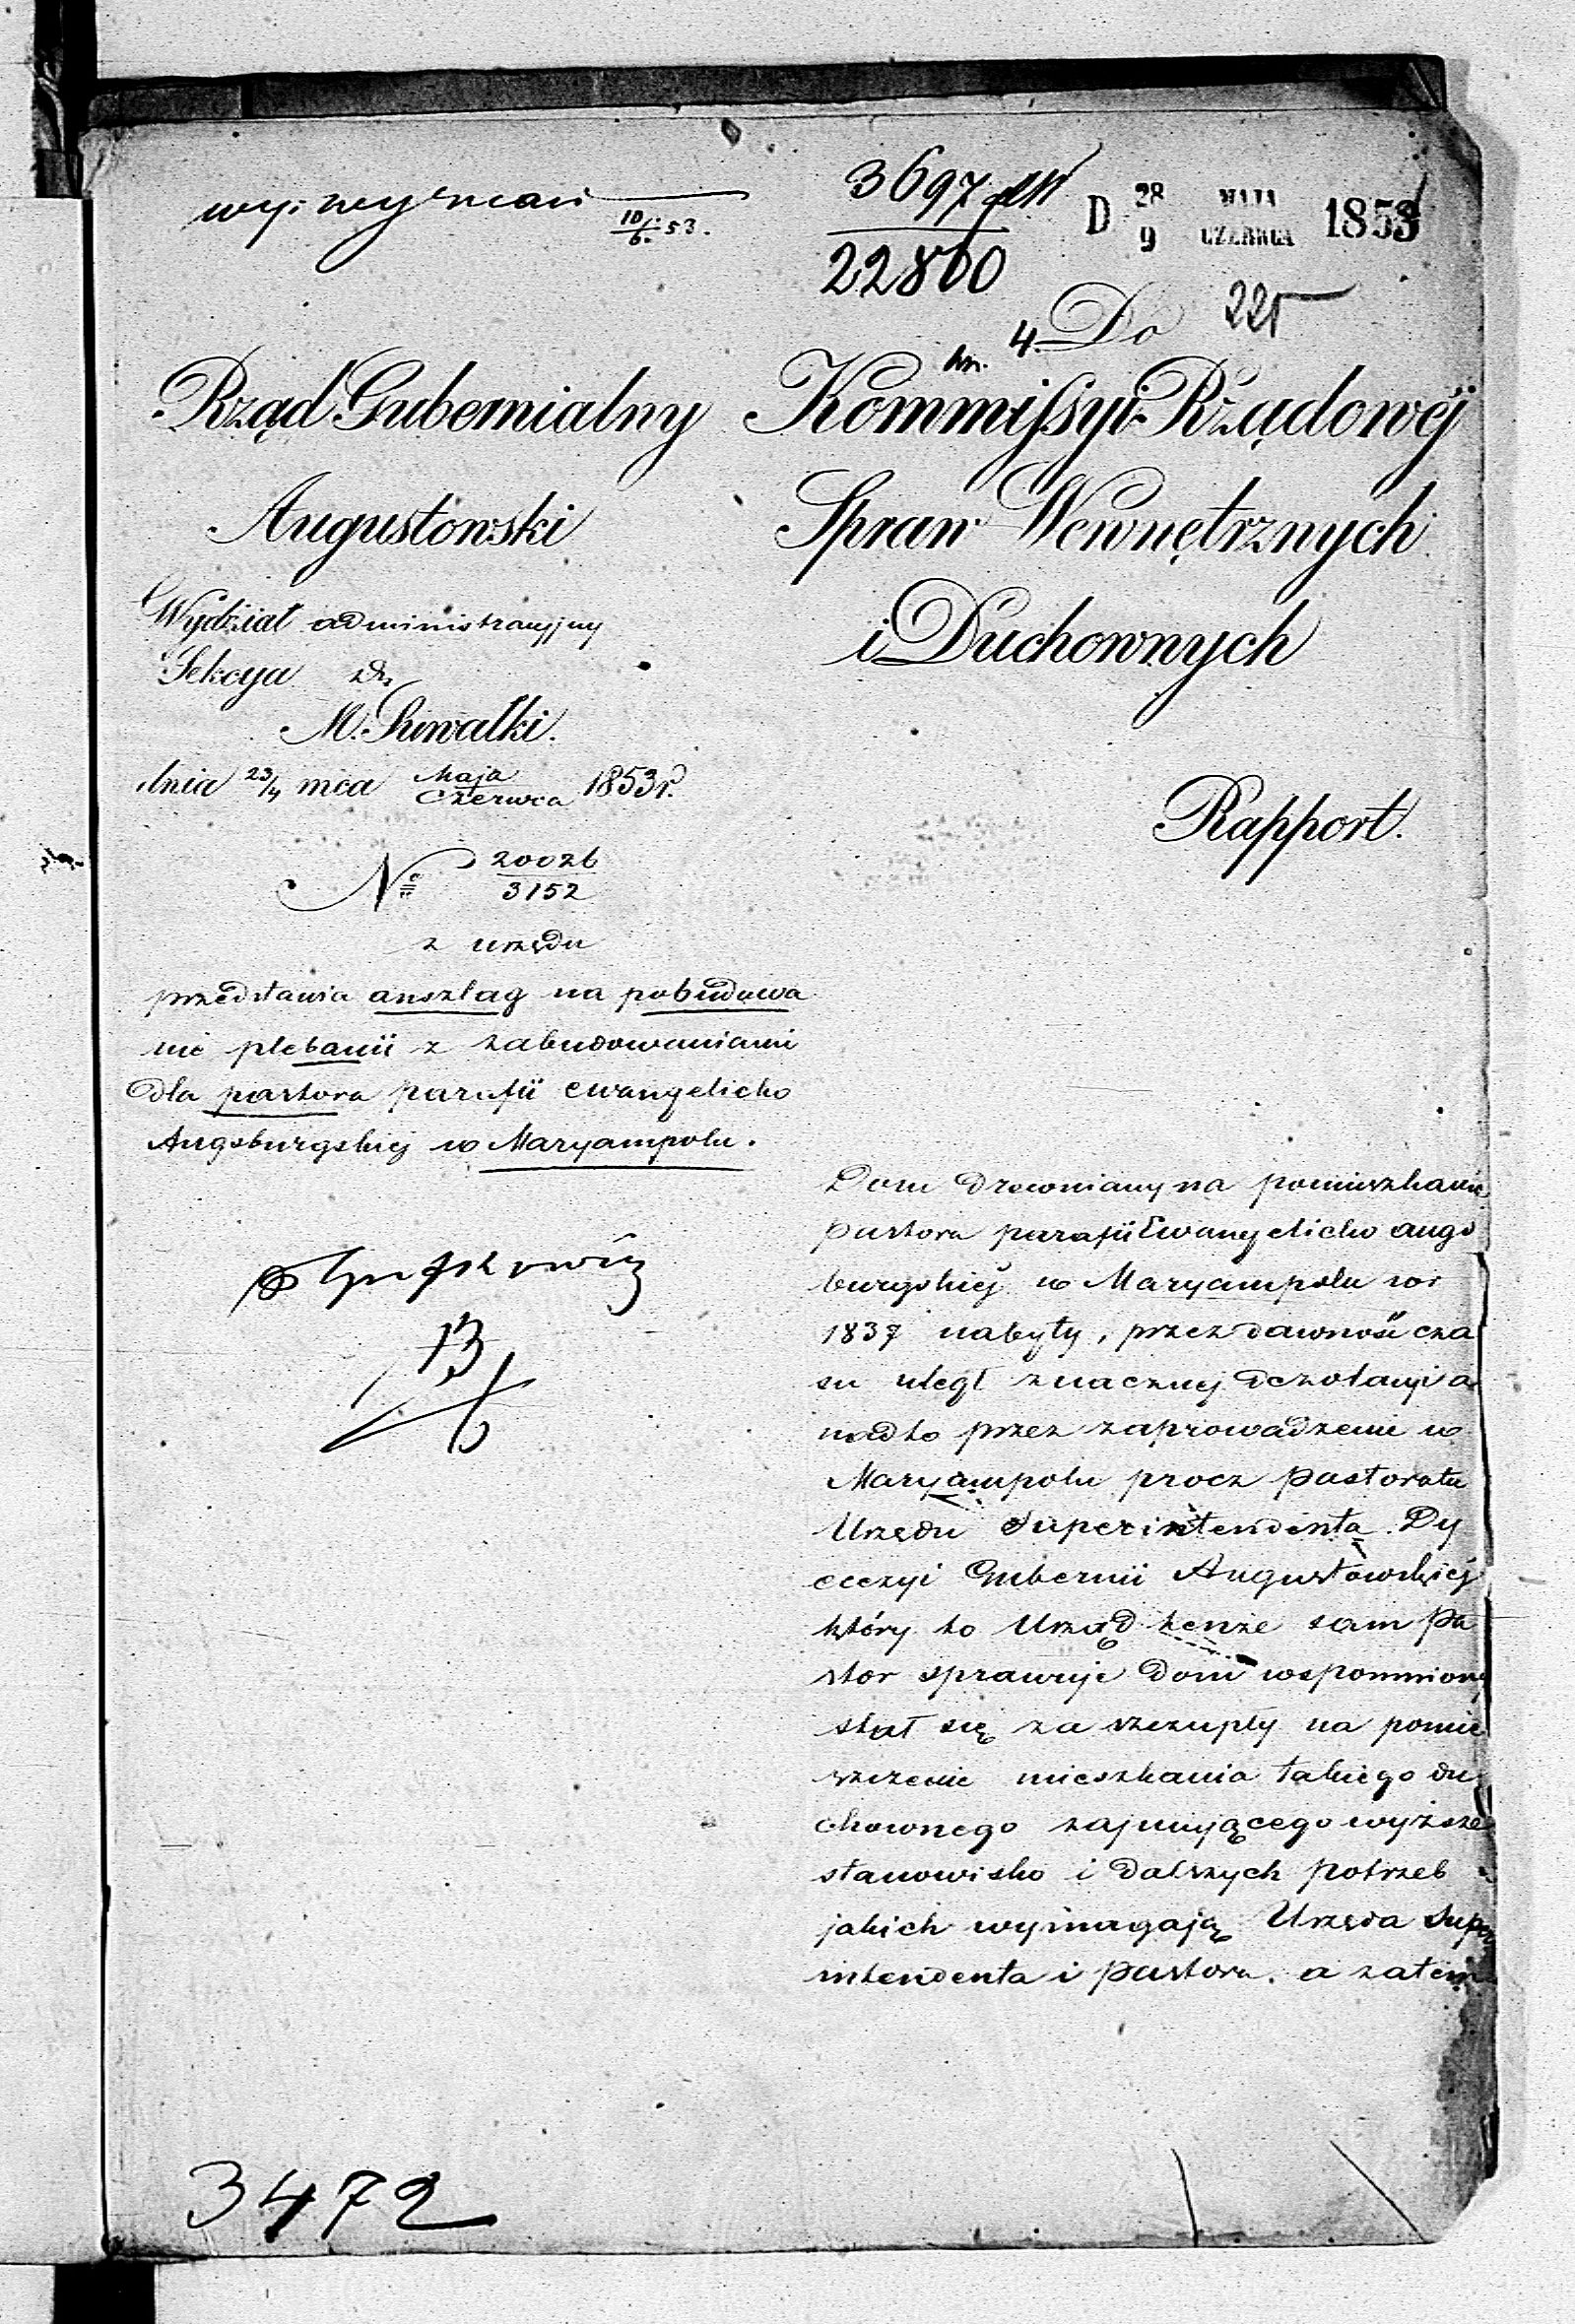 10/6 53.
3697
22800
D 28 MAJA 1853
9 CZERWCA
225
4. Do
Rząd Gubernialny
Augustowski
Wydział administracyjny
Sekcya
M. Suwałki.
dnia 23/4 mca Maja/Czerwca 1853 r.
No 20026
3152
z urzędu
przedstawia anszlag na pobudowa
nie plebanii z zabudowaniami
dla pastora parafii ewangelicko
Augsburgskiej w Maryampolu.
13
6
3472
Kommissyi Rządowéj
Spraw Wewnętrznych
i Duchownych
Rapport.
Dom drewniany na pomieszkanie
Pastora parafii Ewangelicko augs
burgskiej w Maryampolu w r
1837 nabyty, przez dawność cza
su uległ znacznej dezolacyi a
nadto przez zaprowadzenie w
Maryampolu procz Pastoratu
Urzędu Superintendenta Dy
ecezyi Gubernii Augustowskiej
który to Urząd tenże sam Pa
stor sprawuje Dom wspomniony
stał się za szczupły na pomie
szczenie mieszkania takiego du
chownego zajmującego wyższe
stanowisko i dalszych potrzeb
jakich wymagają Urzęda Super
intendenta i Pastora. a zatem